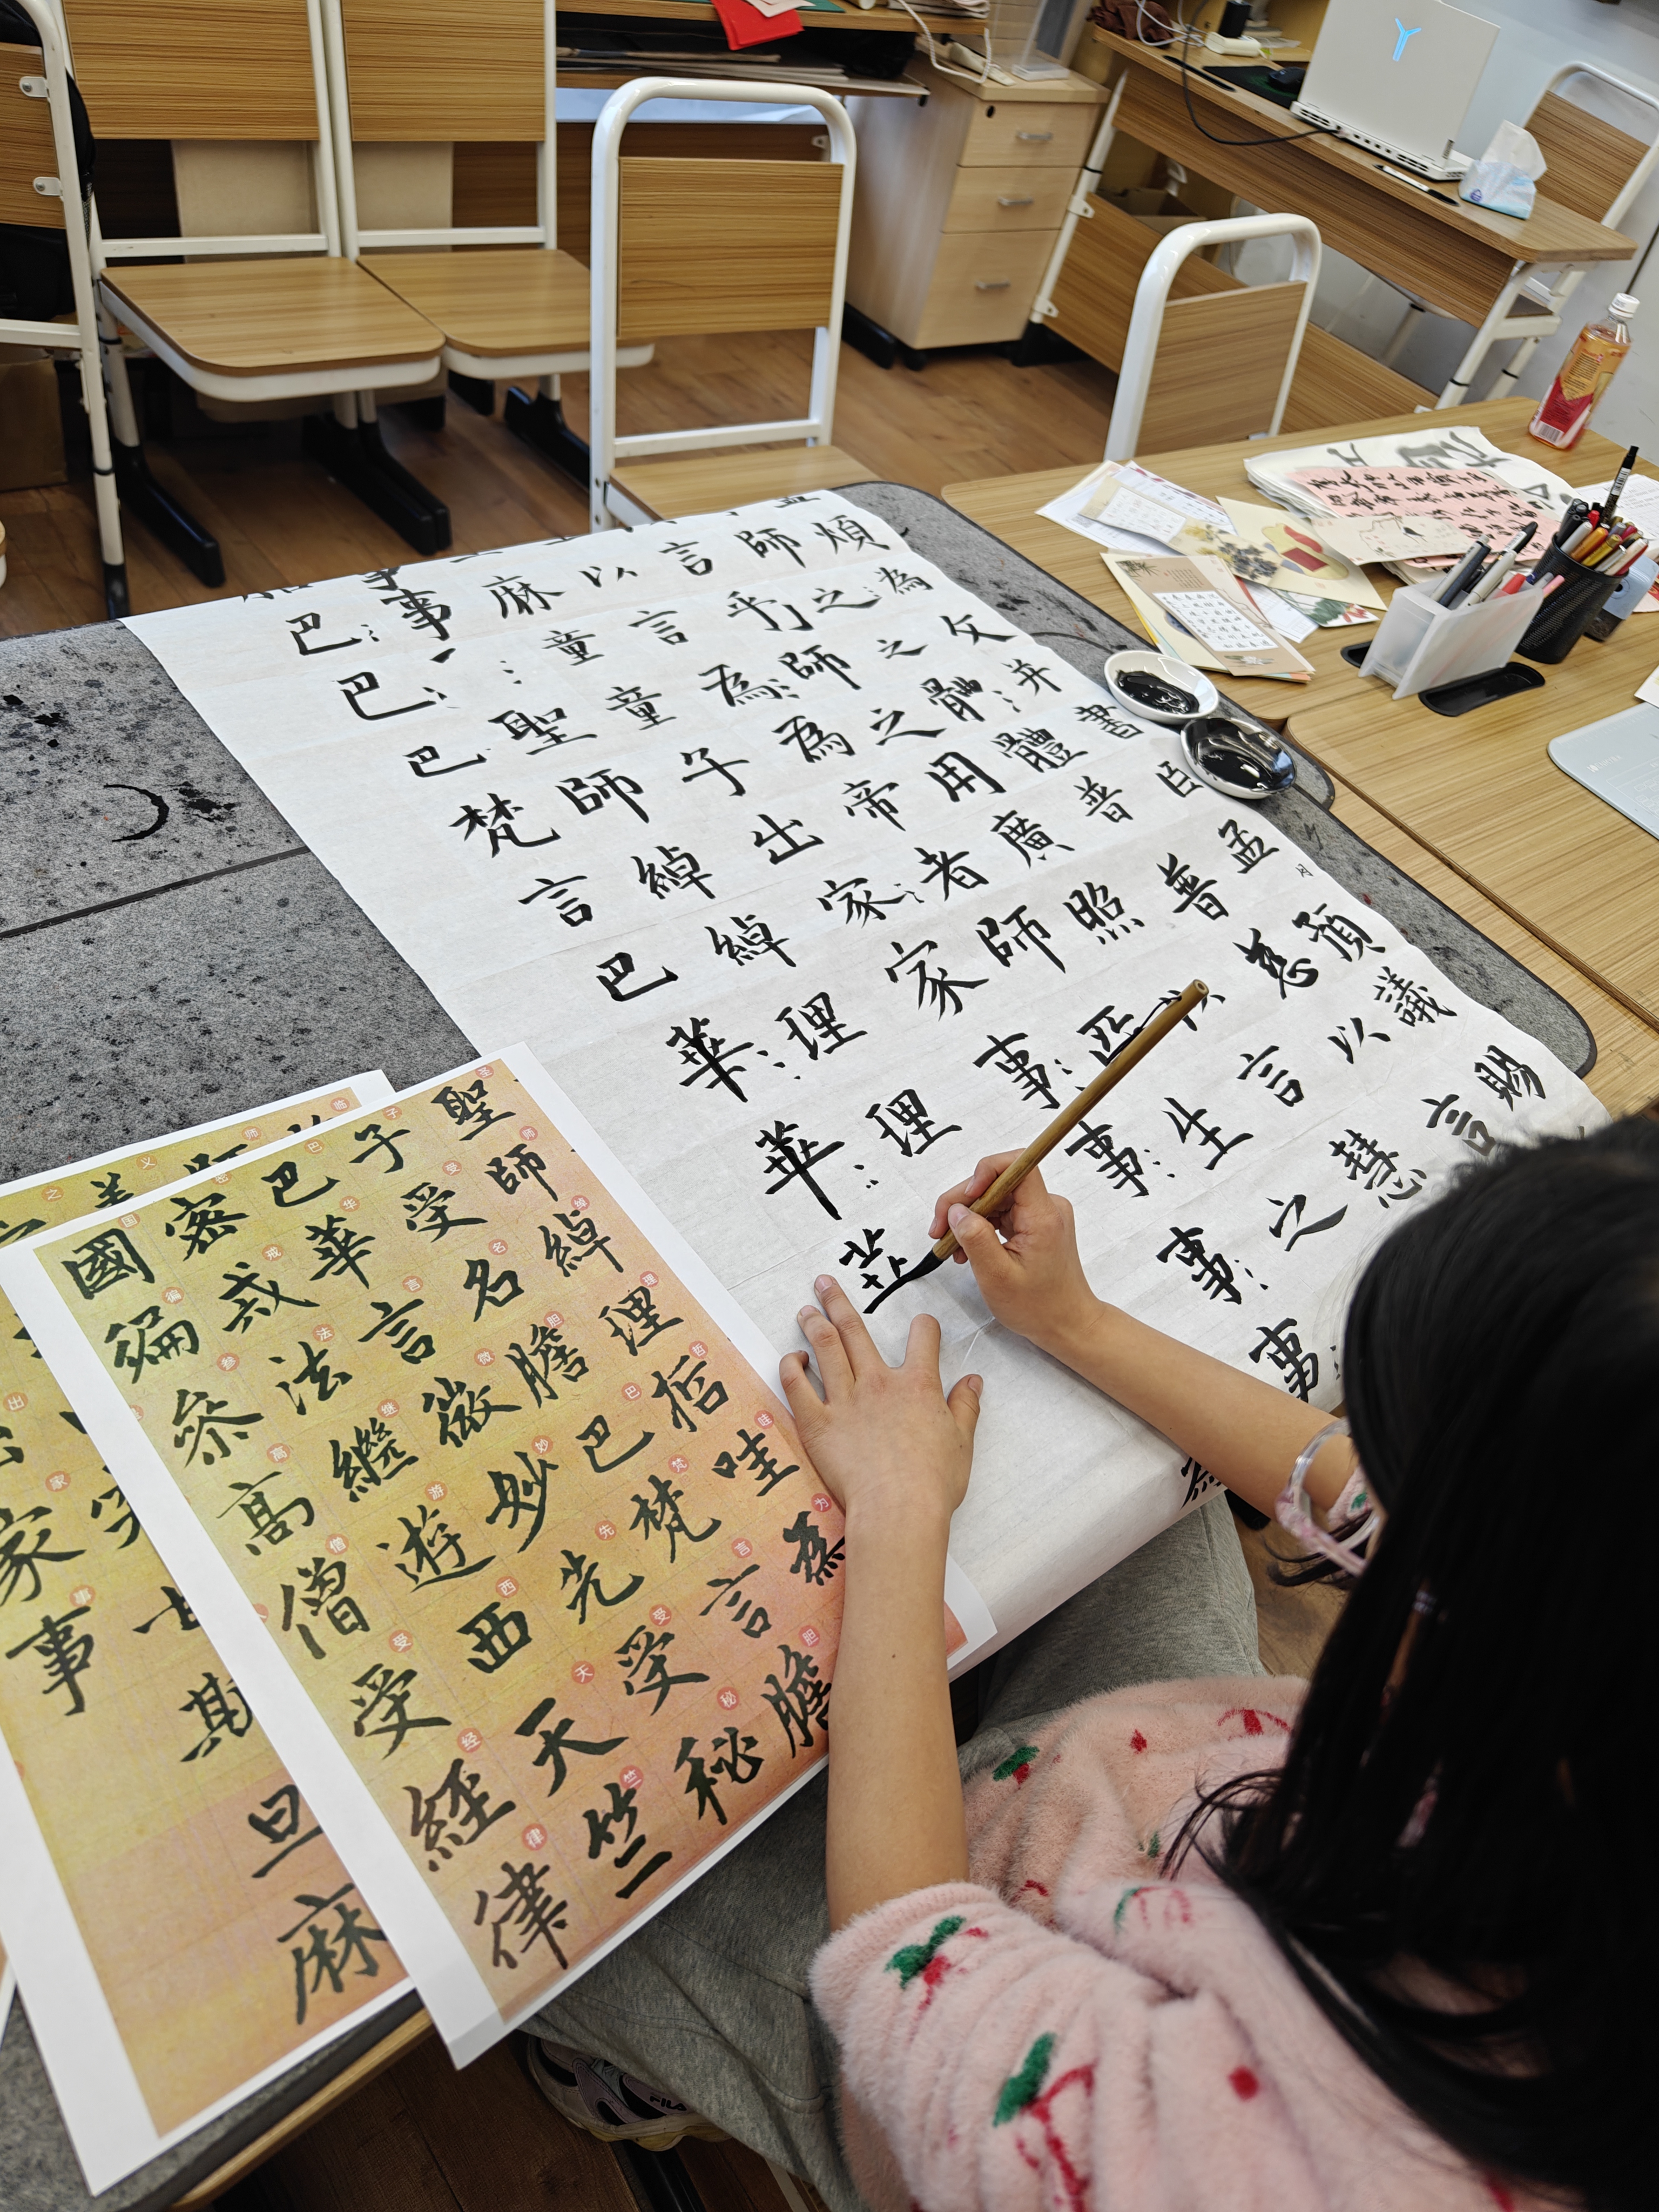 聖師綽理哲哇為膽
子受名膽巴梵言
巴華言微妙先受秘
密戒法繼遊西天竺
國徧參高僧受經律
斯旦麻
家事
煩為父并書臣孟頫議賜
師之之體體普普慈以言
言乎師之用廣照言慧
以言為為帝者師生之
麻童童子出家家事事事事
事聖師綽綽理理
巴巴巴梵言巴華華